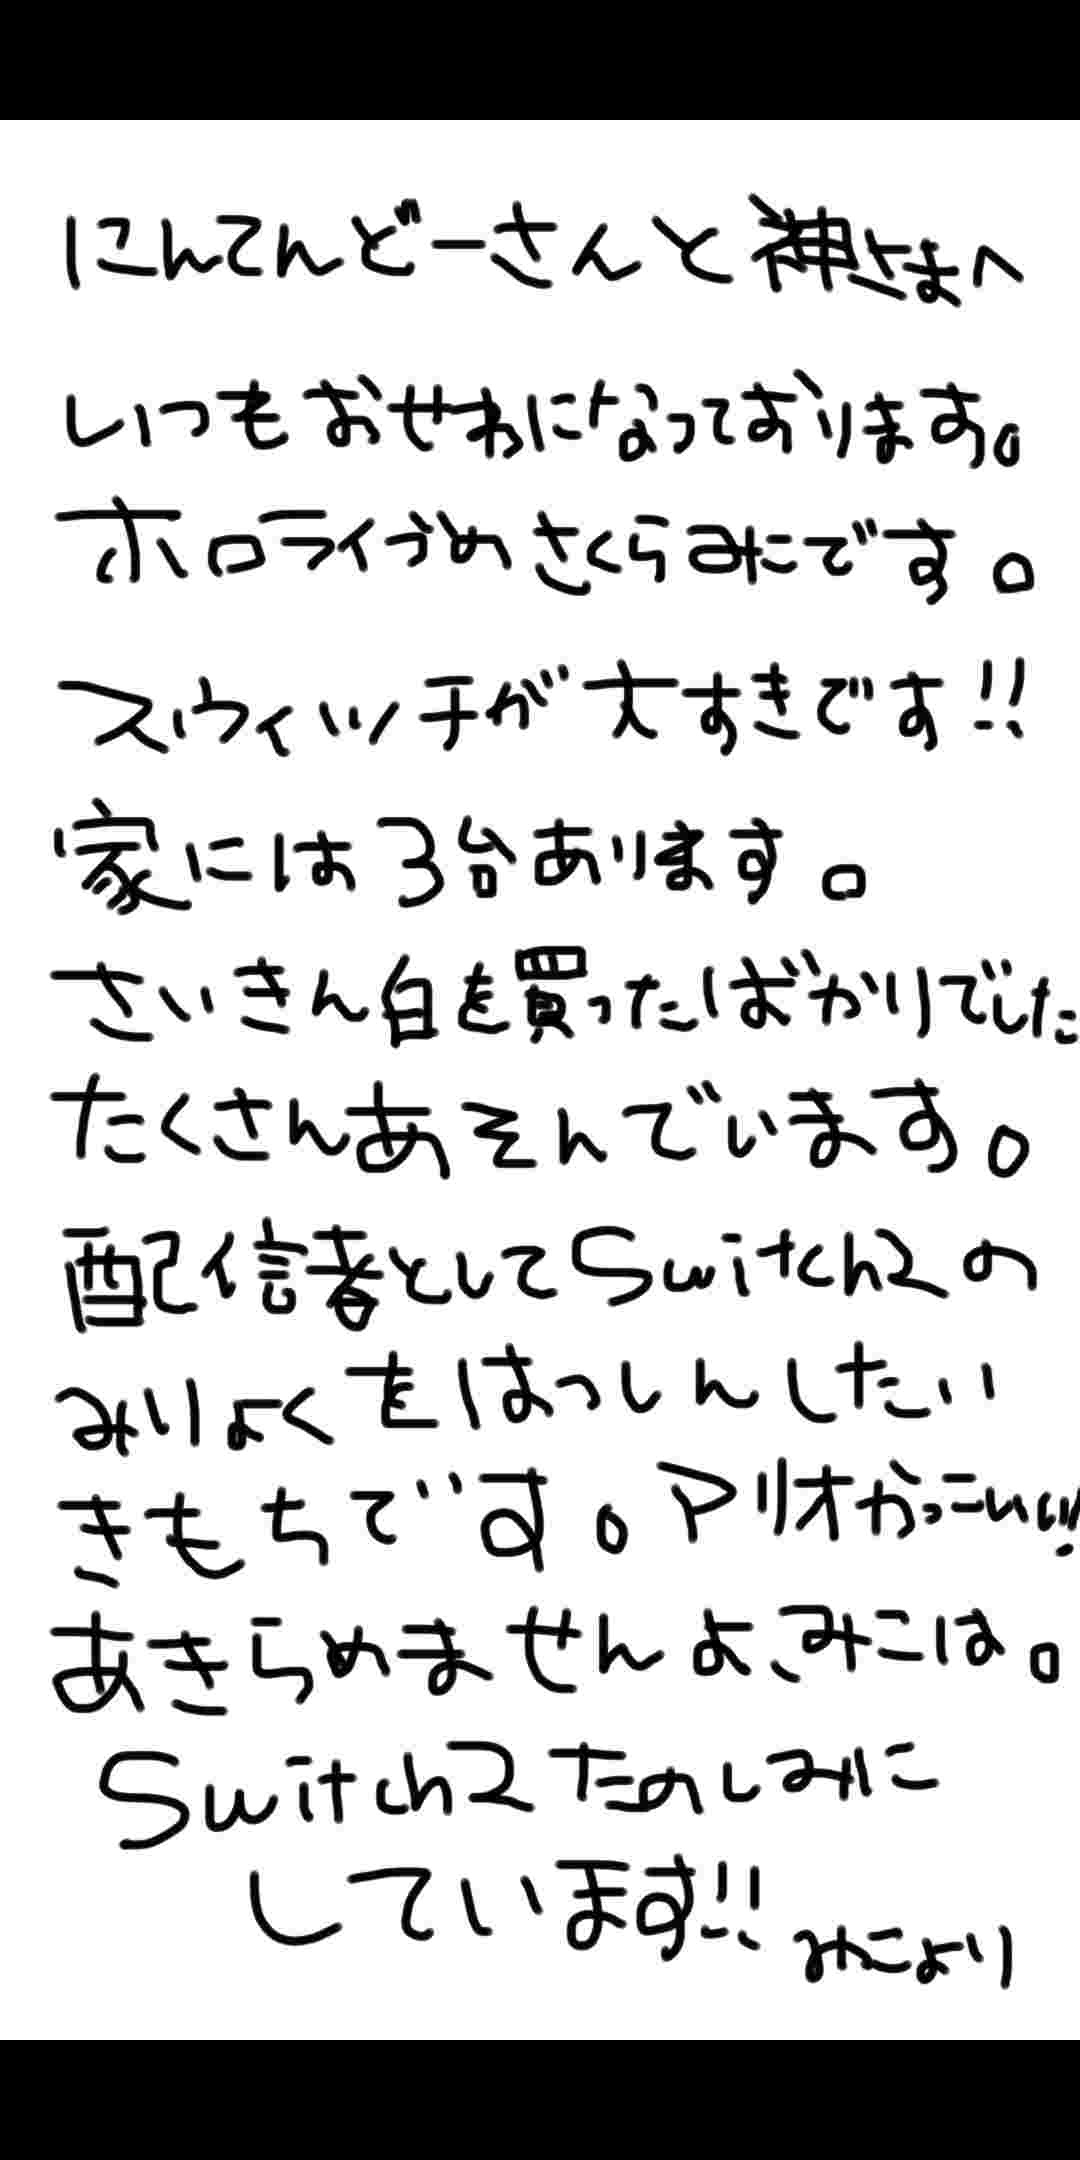 にんてんどーさんと神さまへ
いつもおせわになっております。
ホロライヴめさくらみこです。
スウィッチが大すきです!!
家には3台あります。
さいきん白を買ったばかりでした
たくさんあそんでいます。
配信者としてSwitch2の
みりょくをはっしんしたい
きもちです。マリオかっこいい!!
あきらめませんよみこは。
Switch2たのしみに
しています!!
みこより